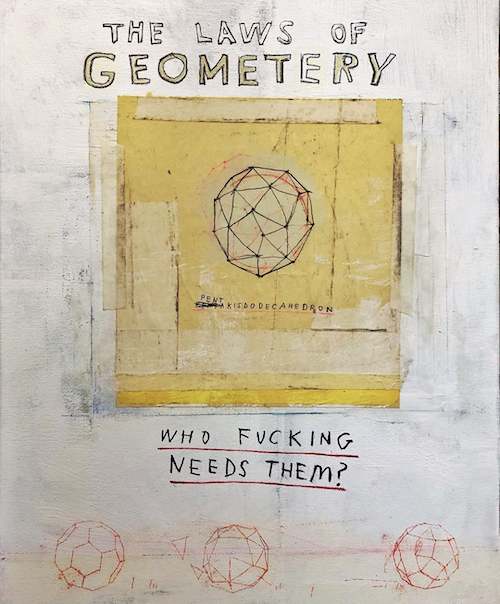 THE LAWS OF
GEOMETERY
PENT
AKISDODECAHEDRON
WHO FUCKING
NEEDS THEM?